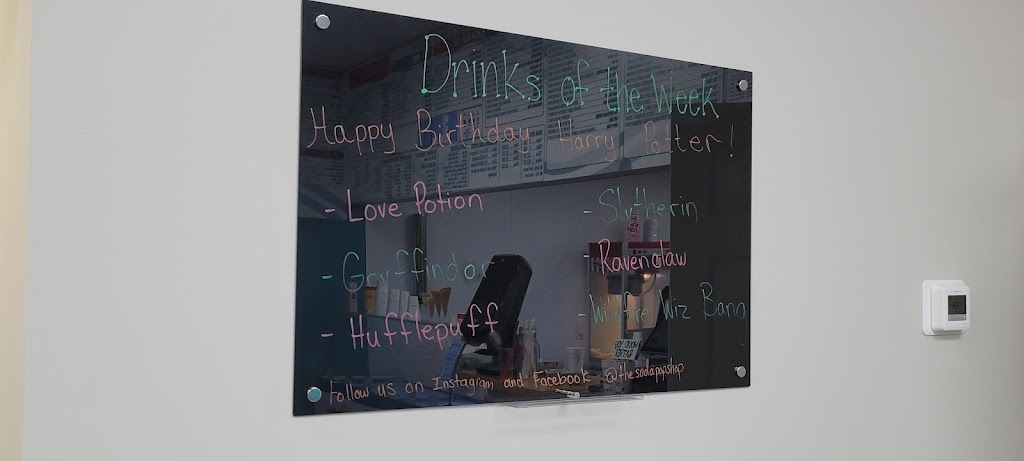 Drinks of the Week
Happy Birthday Harry Potter!
- Love Potion
- Gryffindor
- Hufflepuff
- Slytherin
- Ravenclaw
- Wildfire Wiz Bang
Follow us on Instagram and Facebook @thesodapopshop